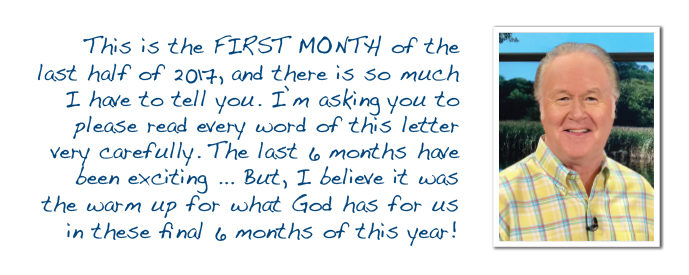 This is the FIRST MONTH of the
last half of 2017, and there is so much
I have to tell you. I`m asking you to
please read every word of this letter
very carefully. The last 6 months have
been exciting ... But, I believe it was
the warm up for what God has for us
in these final 6 months of this year!